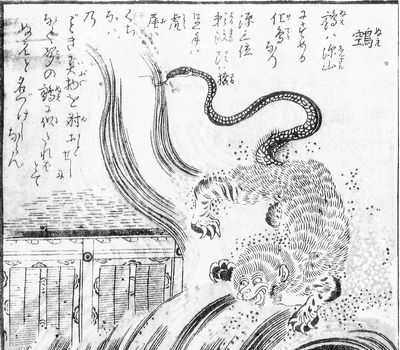 鵼
鵺ハ深山
にすめる
化鳥なり
源三位
頼政頭ハ猿
足手ハ
虎
尾ハ
くち
なハ
の
ごとき異物を射おとせしに
なく声の鵺に似たれバとて
ぬえと名づけしならん